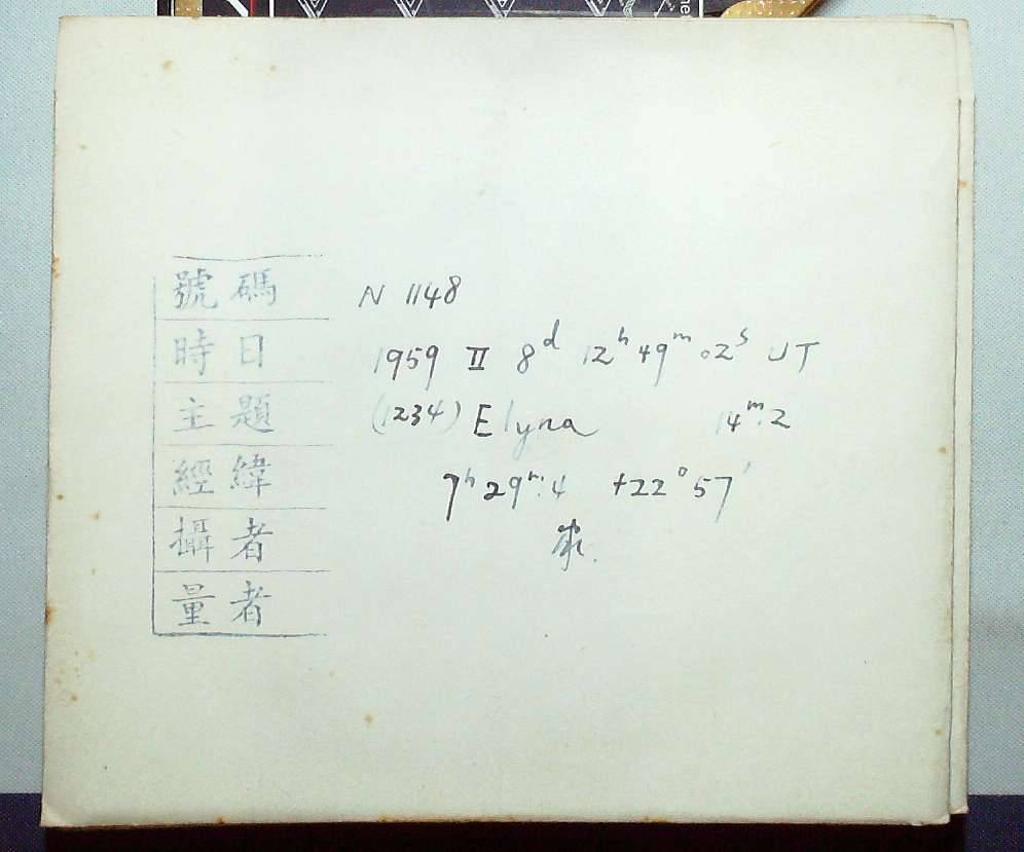 號碼 N 1148
時日 1959 II 8ᵈ 12ʰ 49ᵐ 02ˢ UT
主題 (1234) Elyna 14ᵐ.2
經緯 7ʰ 29ᵐ.4 +22° 57′
攝者
量者